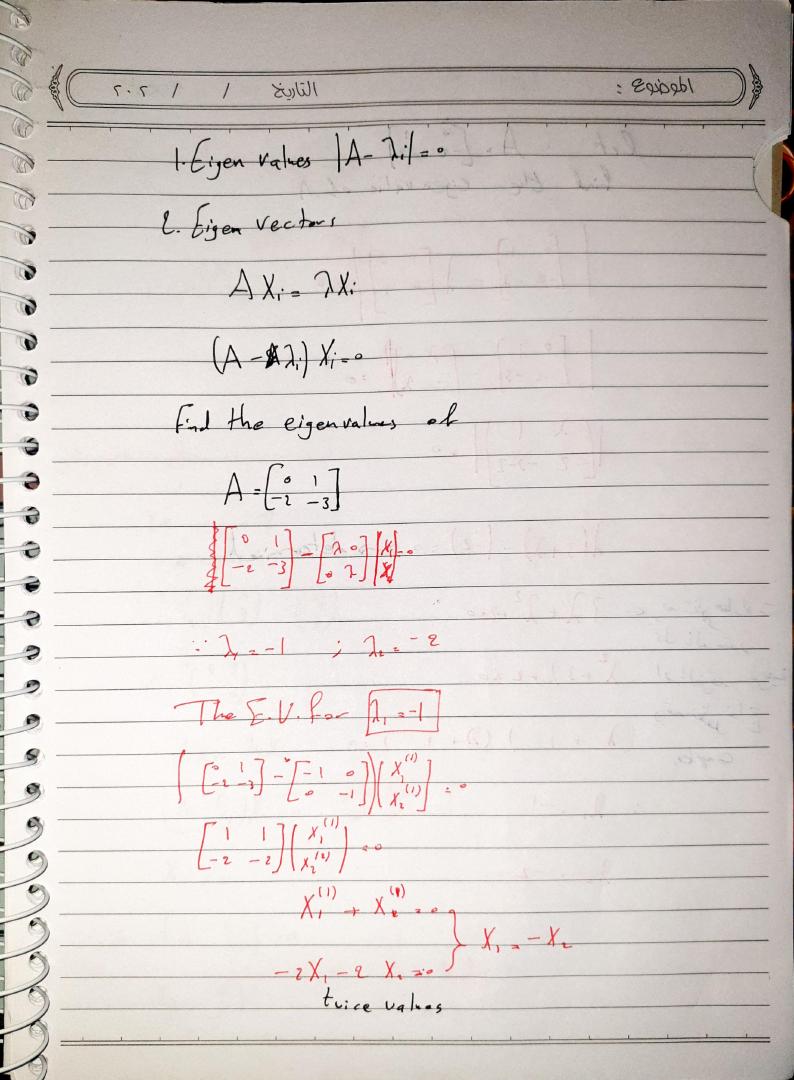 الموضوع :
التاريخ / / ٢٠٢
1. Eigen values |A - λi| = 0
2. Eigen vectors
A Xi = λ Xi
(A - λi) Xi = 0
Find the eigenvalues of
A = [0 1; -2 -3]
[0 1; -2 -3] - [λ 0; 0 λ] = 0
∵ λ₁ = -1 ; λ₂ = -2
The E.V. for λ₁ = -1
([0 1; -2 -3] - [-1 0; 0 -1]) (X₁⁽¹⁾; X₂⁽¹⁾) = 0
[1 1; -2 -2] (X₁⁽¹⁾; X₂⁽²⁾) = 0
X₁⁽¹⁾ + X₂⁽¹⁾ = 0
} X₁ = - X₂
-2X₁ - 2 X₂ = 0
twice values